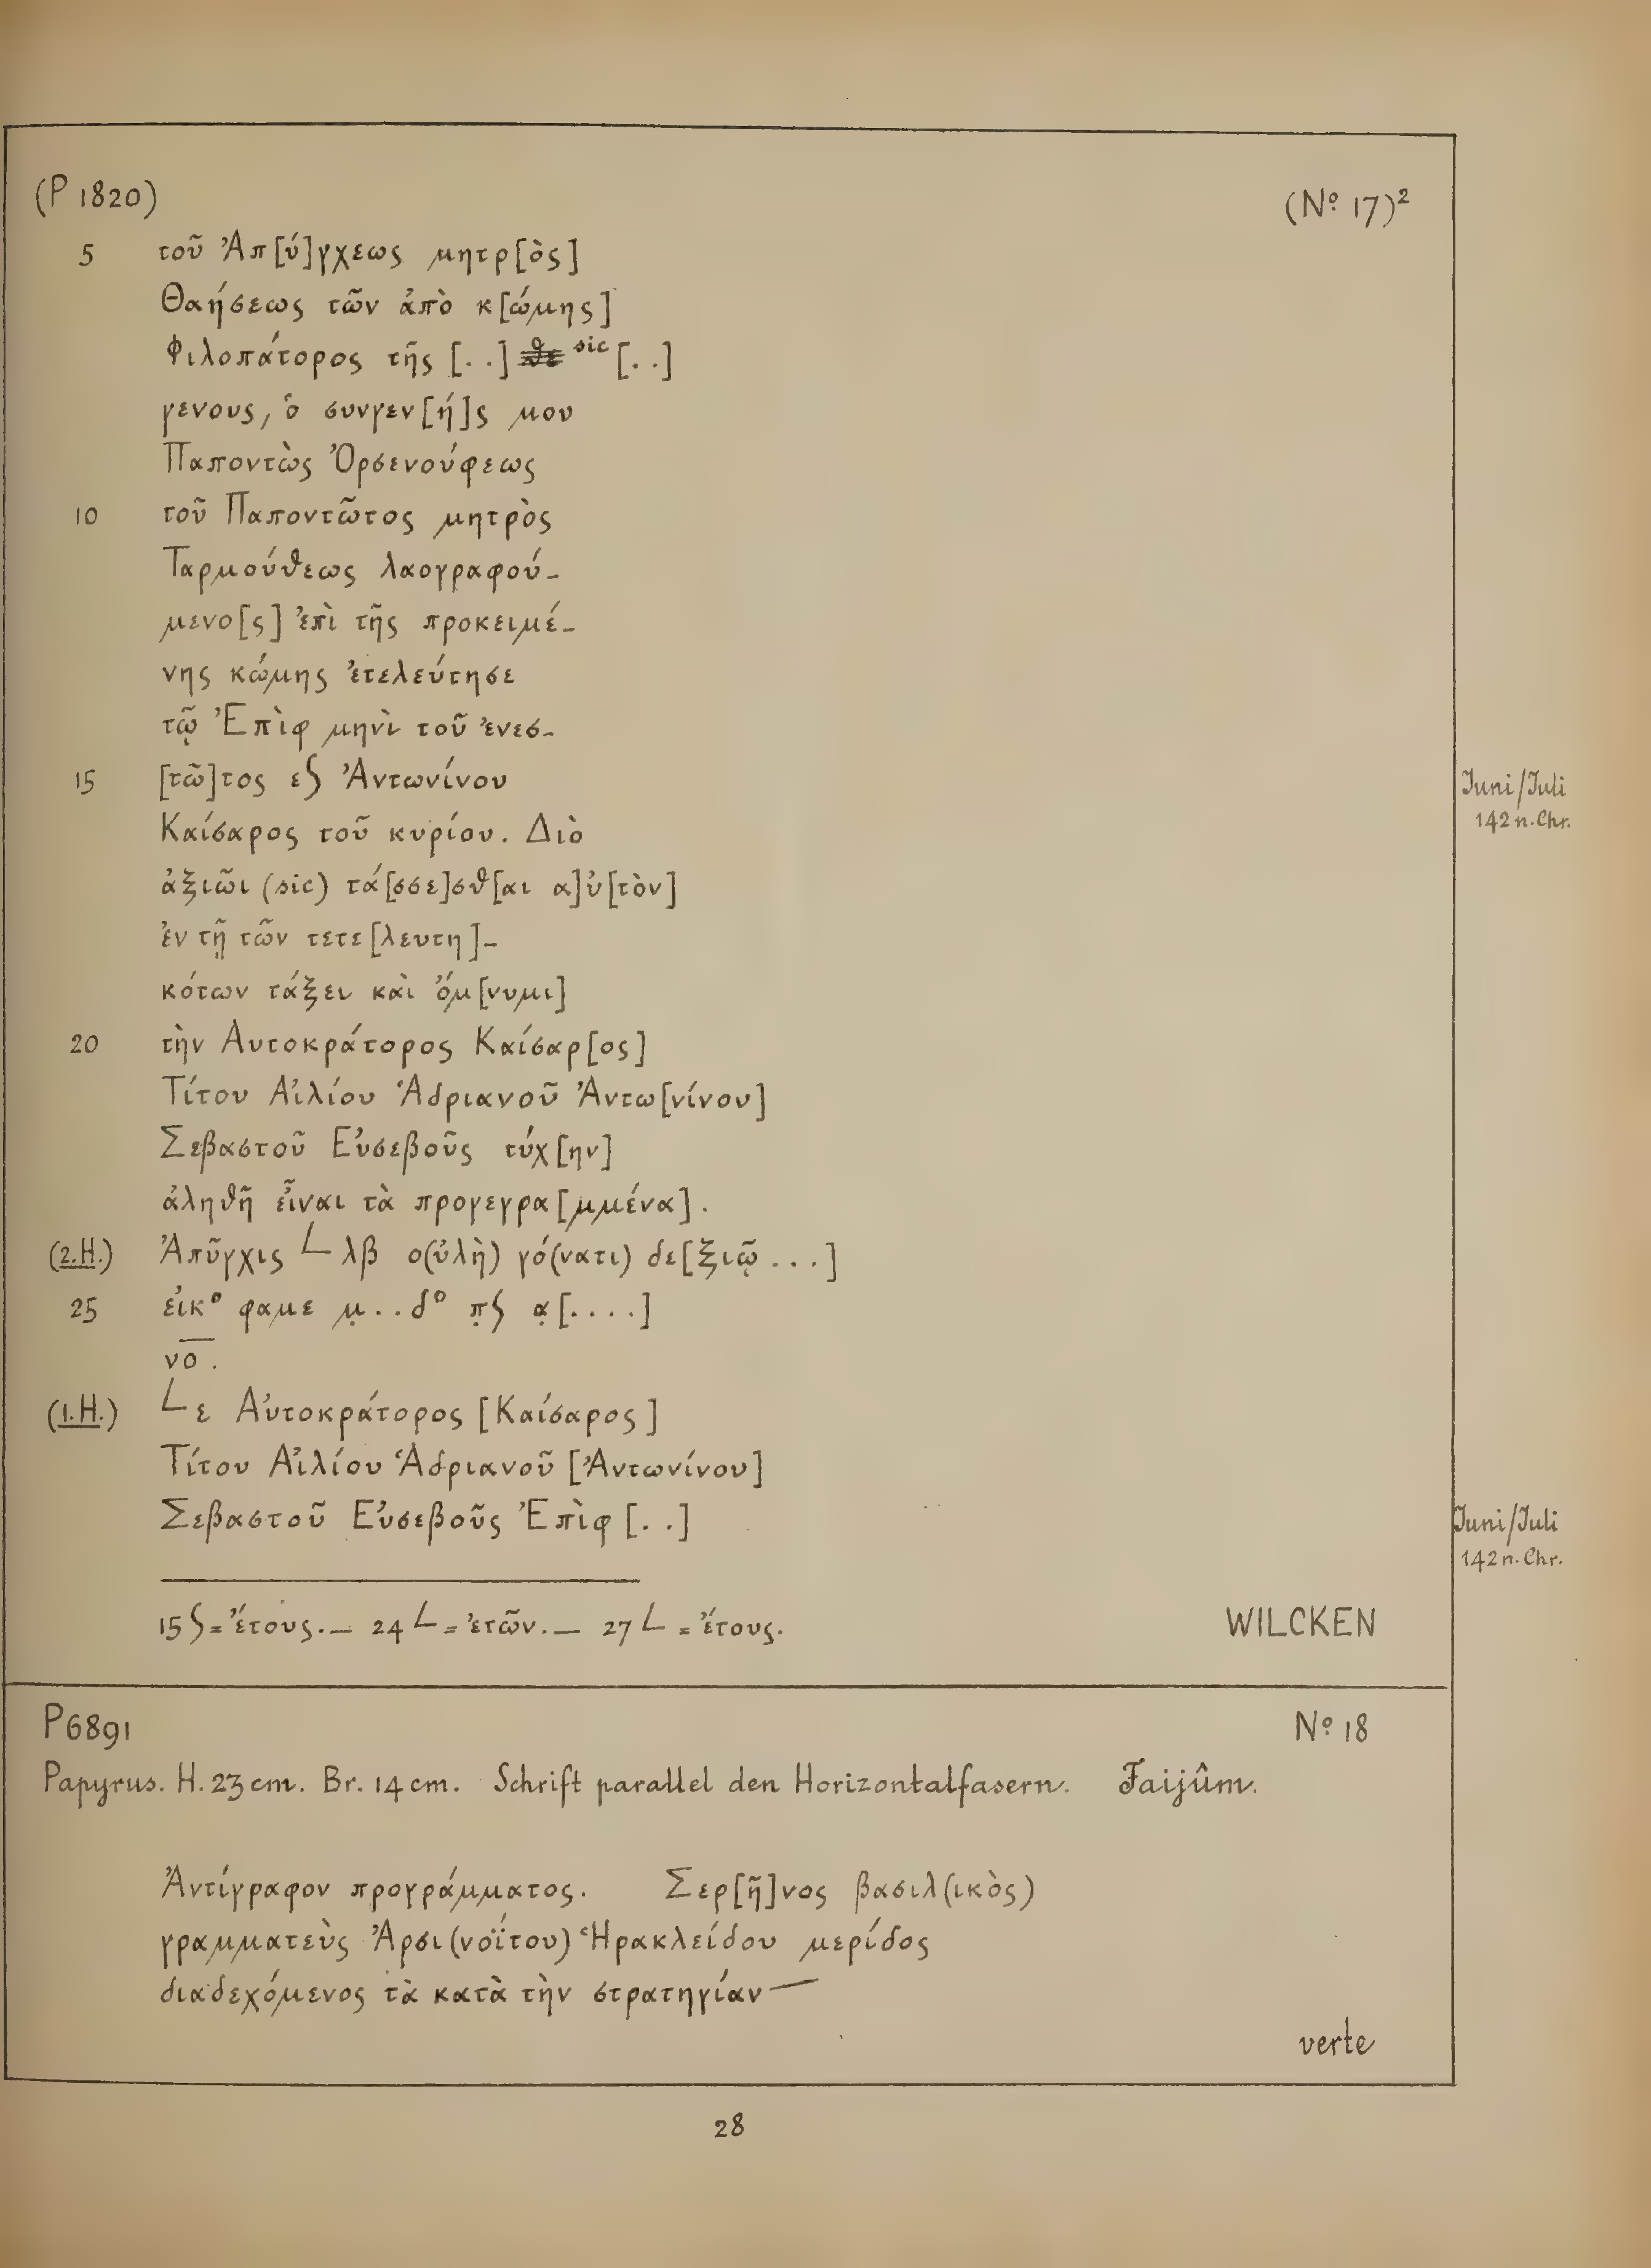 (P 1820) (Nº 17)²
5 τοῦ Ἀπ[ύ]γχεως μητρ[ὸς]
Θαήσεως τῶν ἀπὸ κ[ώμης]
Φιλοπάτορος τῆς [. .] θε sic [. .]
γενους, ὁ συνγεν[ή]ς μου
Παποντὼς Ὀρσενούφεως
10 τοῦ Παποντῶτος μητρὸς
Ταρμούθεως λαογραφού-
μενο[ς] ἐπὶ τῆς προκειμέ-
νης κώμης ἐτελεύτησε
τῷ Ἐπὶφ μηνὶ τοῦ ἐνεσ-
15 [τῶ]τος εʃ Ἀντωνίνου Juni/Juli
Καίσαρος τοῦ κυρίου. Διὸ 142 n. Chr.
ἀξιῶι (sic) τά[σσε]σθ[αι α]ὐ[τὸν]
ἐν τῇ τῶν τετε[λευτη]-
κότων τάξει καὶ ὄμ[νυμι]
20 τὴν Αυτοκράτορος Καίσαρ[ος]
Τίτου Αἰλίου Ἁδριανοῦ Ἀντω[νίνου]
Σεβαστοῦ Εὐσεβοῦς τύχ[ην]
ἀληθῆ εἶναι τὰ προγεγρα[μμένα].
(2.H.) Ἀπῦγχις L λβ ο(ὐλὴ) γό(νατι) δε[ξιῷ ...]
25 εἰκº φαμε μ̣..δº π̣ʃ α̣[....]
ν̅ο̅.
(1.H.) L ε Αὐτοκράτορος [Καίσαρος]
Τίτου Αἰλίου Ἁδριανοῦ [Ἀντωνίνου]
Σεβαστοῦ Εὐσεβοῦς Ἐπὶφ [. .] Juni/Juli
142 n. Chr.
15 ʃ = ἔτους. — 24 L = ἐτῶν. — 27 L = ἔτους. WILCKEN
P 6891 Nº 18
Papyrus. H. 23 cm. Br. 14 cm. Schrift parallel den Horizontalfasern. Faijûm.
Ἀντίγραφον προγράμματος. Σερ[ῆ]νος βασιλ(ικὸς)
γραμματεὺς Ἀρσι(νοΐτου) Ἡρακλείδου μερίδος
διαδεχόμενος τὰ κατὰ τὴν στρατηγίαν —
verte
28